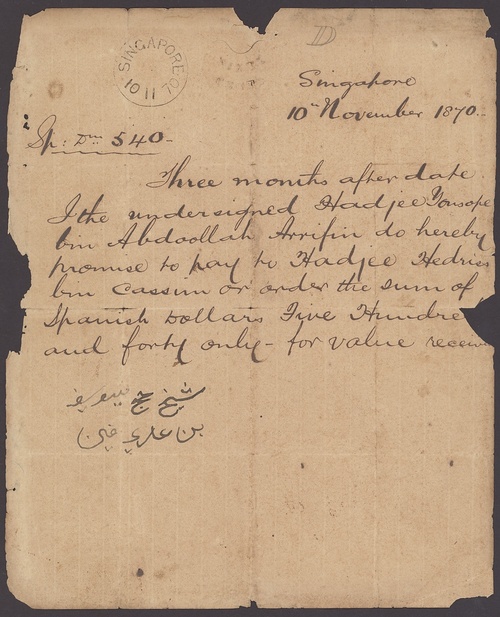 SINGAPORE
10 11
D
Singapore
10th November 1870.
Sp: Drs 540-
Three months after date
I the undersigned Hadjee Yousope
bin Abdoollah Arrifin do hereby
promise to pay to Hadjee Hedriss
bin Cassim or order the sum of
Spanish Dollars Five Hundre
and forty only - for value receiv
شيخ حج
بن